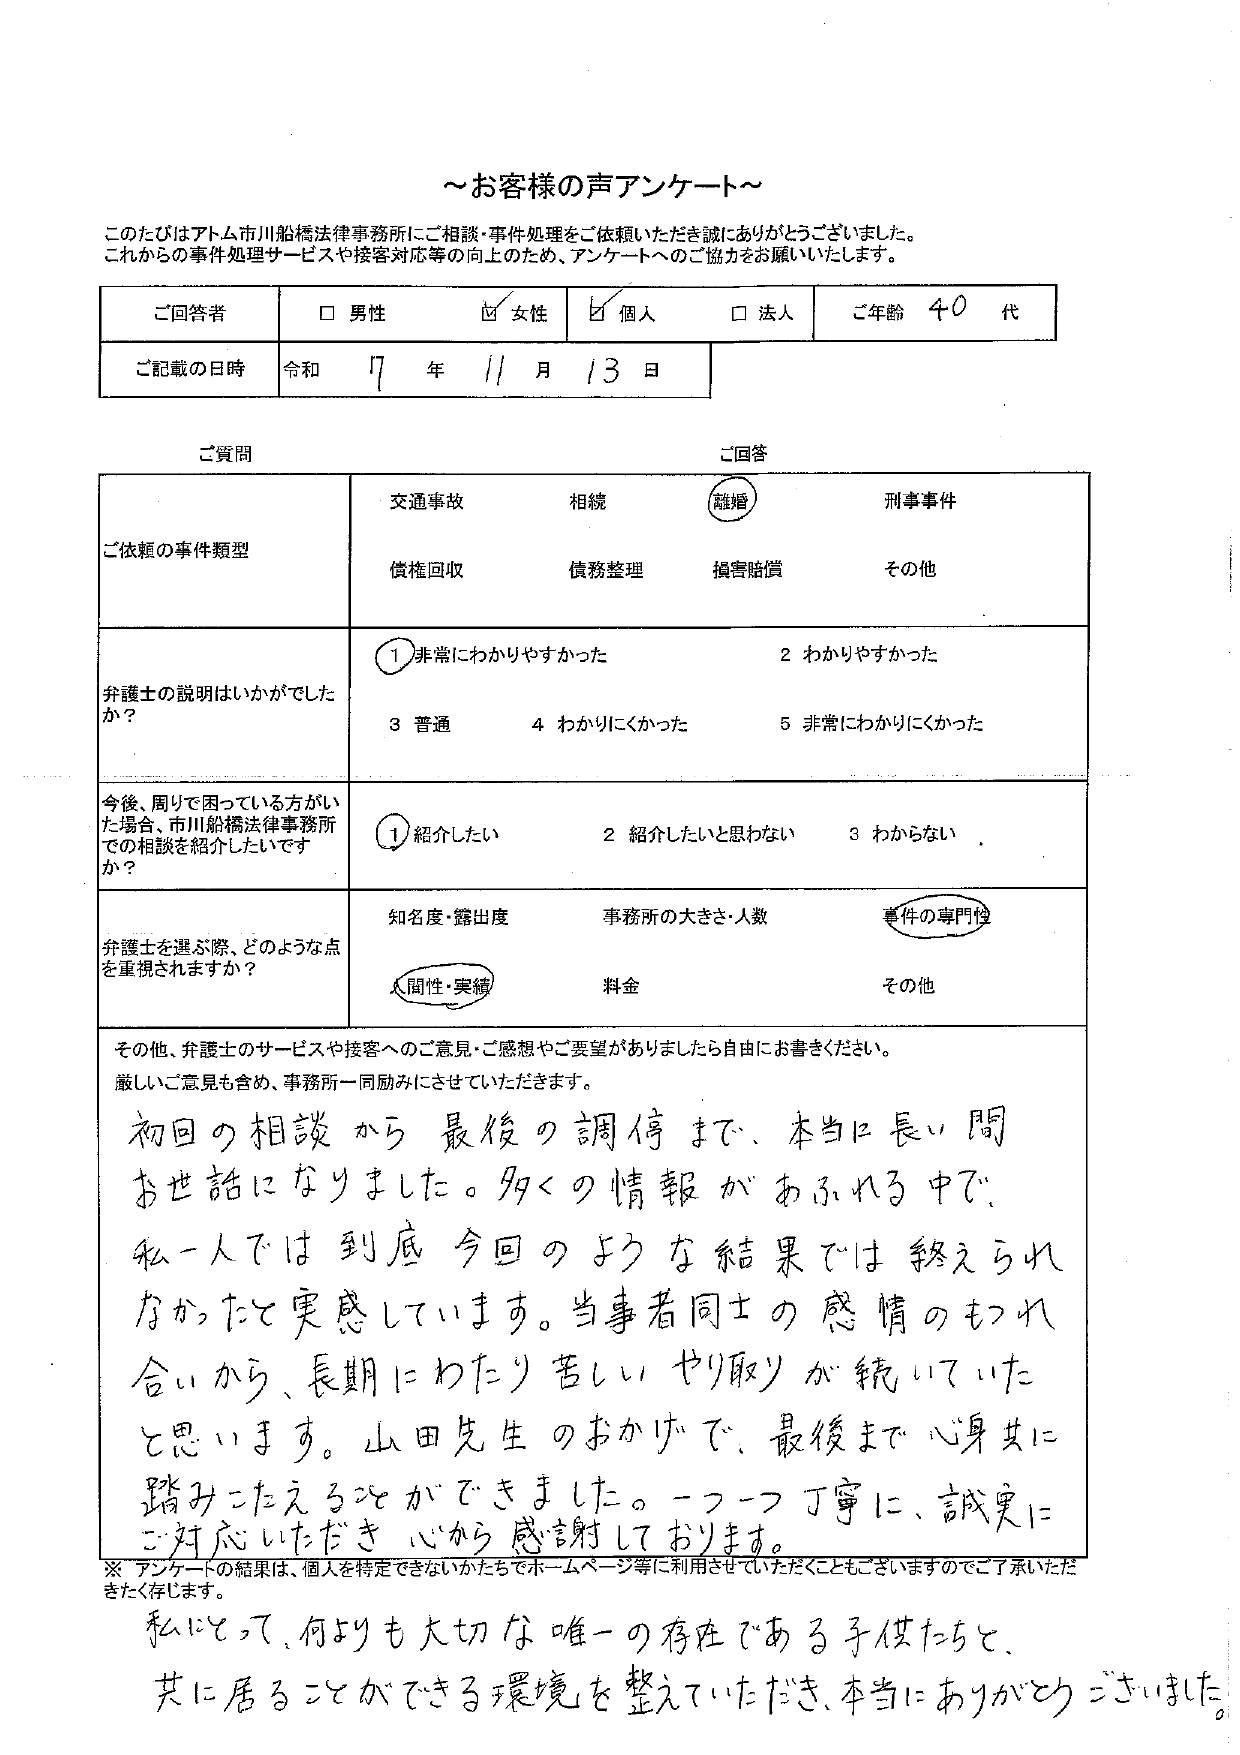 ～お客様の声アンケート～
このたびはアトム市川船橋法律事務所にご相談・事件処理をご依頼いただき誠にありがとうございました。
これからの事件処理サービスや接客対応等の向上のため、アンケートへのご協力をお願いいたします。
ご回答者 □ 男性 ☑ 女性 ☑ 個人 □ 法人 ご年齢 40 代
ご記載の日時 令和 7 年 11 月 13 日
ご質問 ご回答
ご依頼の事件類型
交通事故 相続 離婚 刑事事件
債権回収 債務整理 損害賠償 その他
弁護士の説明はいかがでした
か？
1 非常にわかりやすかった 2 わかりやすかった
3 普通 4 わかりにくかった 5 非常にわかりにくかった
今後、周りで困っている方がい
た場合、市川船橋法律事務所
での相談を紹介したいです
か？
1 紹介したい 2 紹介したいと思わない 3 わからない
弁護士を選ぶ際、どのような点
を重視されますか？
知名度・露出度 事務所の大きさ・人数 事件の専門性
人間性・実績 料金 その他
その他、弁護士のサービスや接客へのご意見・ご感想やご要望がありましたら自由にお書きください。
厳しいご意見も含め、事務所一同励みにさせていただきます。
初回の相談から最後の調停まで、本当に長い間
お世話になりました。多くの情報があふれる中で、
私一人では到底今回のような結果では終えられ
なかったと実感しています。当事者同士の感情のもつれ
合いから、長期にわたり苦しいやり取りが続いていた
と思います。山田先生のおかげで、最後まで心身共に
踏みこたえることができました。一つ一つ丁寧に、誠実に
ご対応いただき心から感謝しております。
※ アンケートの結果は、個人を特定できないかたちでホームページ等に利用させていただくこともございますのでご了承いただ
きたく存じます。
私にとって、何よりも大切な唯一の存在である子供たちと、
共に居ることができる環境を整えていただき、本当にありがとうございました。